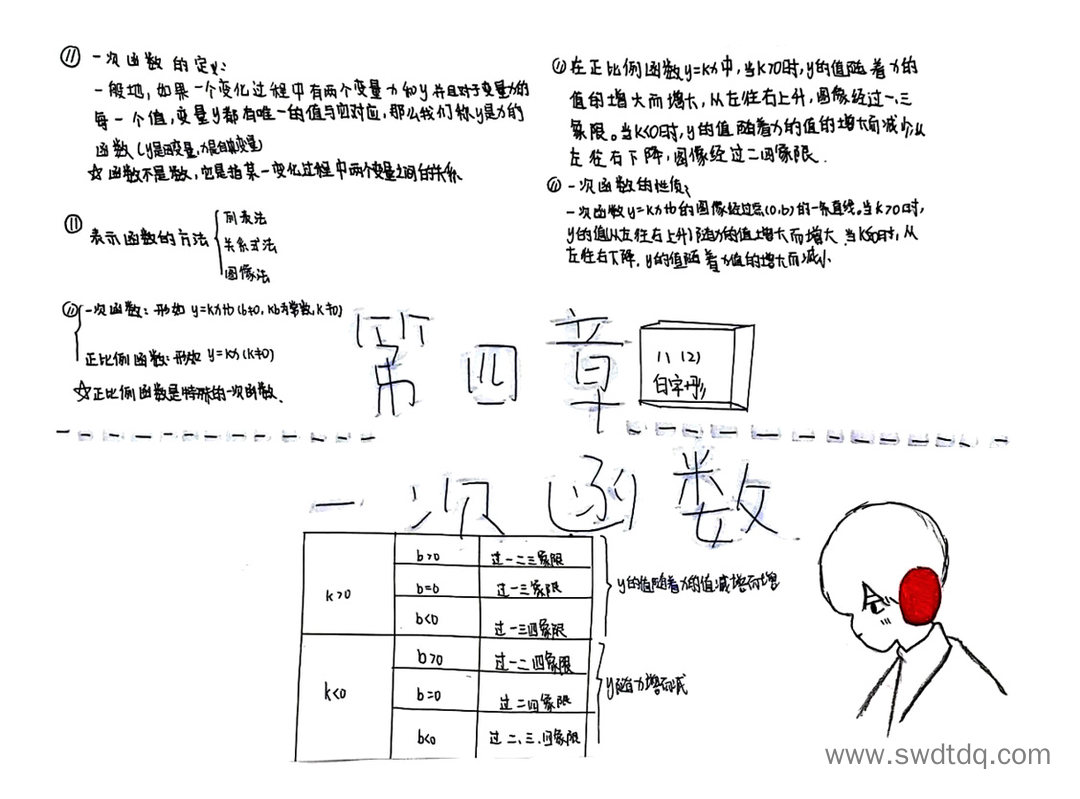 一次函数的定义:
一般地,如果一个变化过程中有两个变量x和y并且对于变量x的
每一个值,变量y都有唯一的值与它对应,那么我们称y是x的
函数(y是因变量,x是自变量)
☆函数不是数,它是指某一变化过程中两个变量之间的关系
表示函数的方法
列表法
关系式法
图像法
一次函数:形如 y=kx+b(b≠0,kb为常数,k≠0)
正比例函数:形如 y=kx(k≠0)
☆正比例函数是特殊的一次函数.
在正比例函数y=kx中,当k>0时,y的值随着x的
值的增大而增大,从左往右上升,图像经过一、三
象限。当k<0时,y的值随着x的值的增大而减少从
左往右下降,图像经过二四象限.
一次函数的性质:
一次函数y=kx+b的图像经过点(0,b)的一条直线。当k>0时,
y的值从左往右上升,随x的值增大而增大 当k≤0时,从
左往右下降,y的值随着x值的增大而减小.
第四章
1、(2)
白字形
一次函数
k>0
b>0 过一二三象限
b=0 过一三象限
b<0 过一三四象限
y的值随着x的值减增而增
k<0
b>0 过一二四象限
b=0 过二四象限
b<0 过二、三、四象限
y随x增而减
www.swdtdq.com